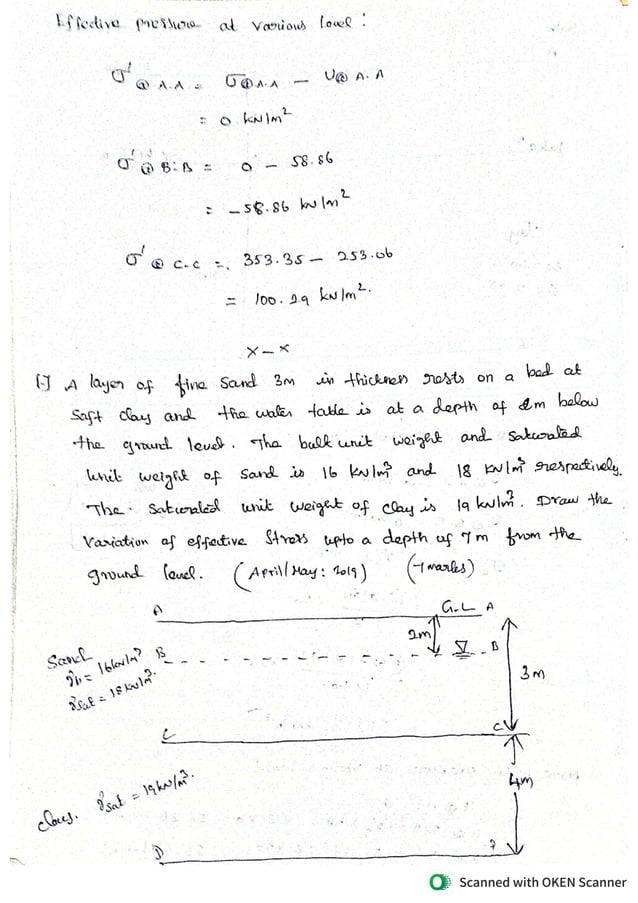 Effective pressure at various level :
σ' @ A.A = σ@A.A – U@ A.A
= 0 kN/m²
σ' @ B.B = 0 – 58.86
= –58.86 kN/m²
σ' @ C-C = 353.35 – 253.06
= 100.29 kN/m².
x – x
A layer of fine sand 3m in thickness rests on a bed at
Soft clay and the water table is at a depth of 2m below
the ground level. The bulk unit weight and saturated
Unit weight of sand is 16 kN/m³ and 18 kN/m³ respectively.
The saturated unit weight of clay is 19 kN/m³. Draw the
Variation of effective stress upto a depth of 7m from the
ground level. (April/May: 2019) (7 marks)
A G.L A
2m
Sand B B
γb = 16kN/m³
γsat = 18kN/m³
3m
C C
clay. γsat = 19kN/m³.
4m
D
Scanned with OKEN Scanner